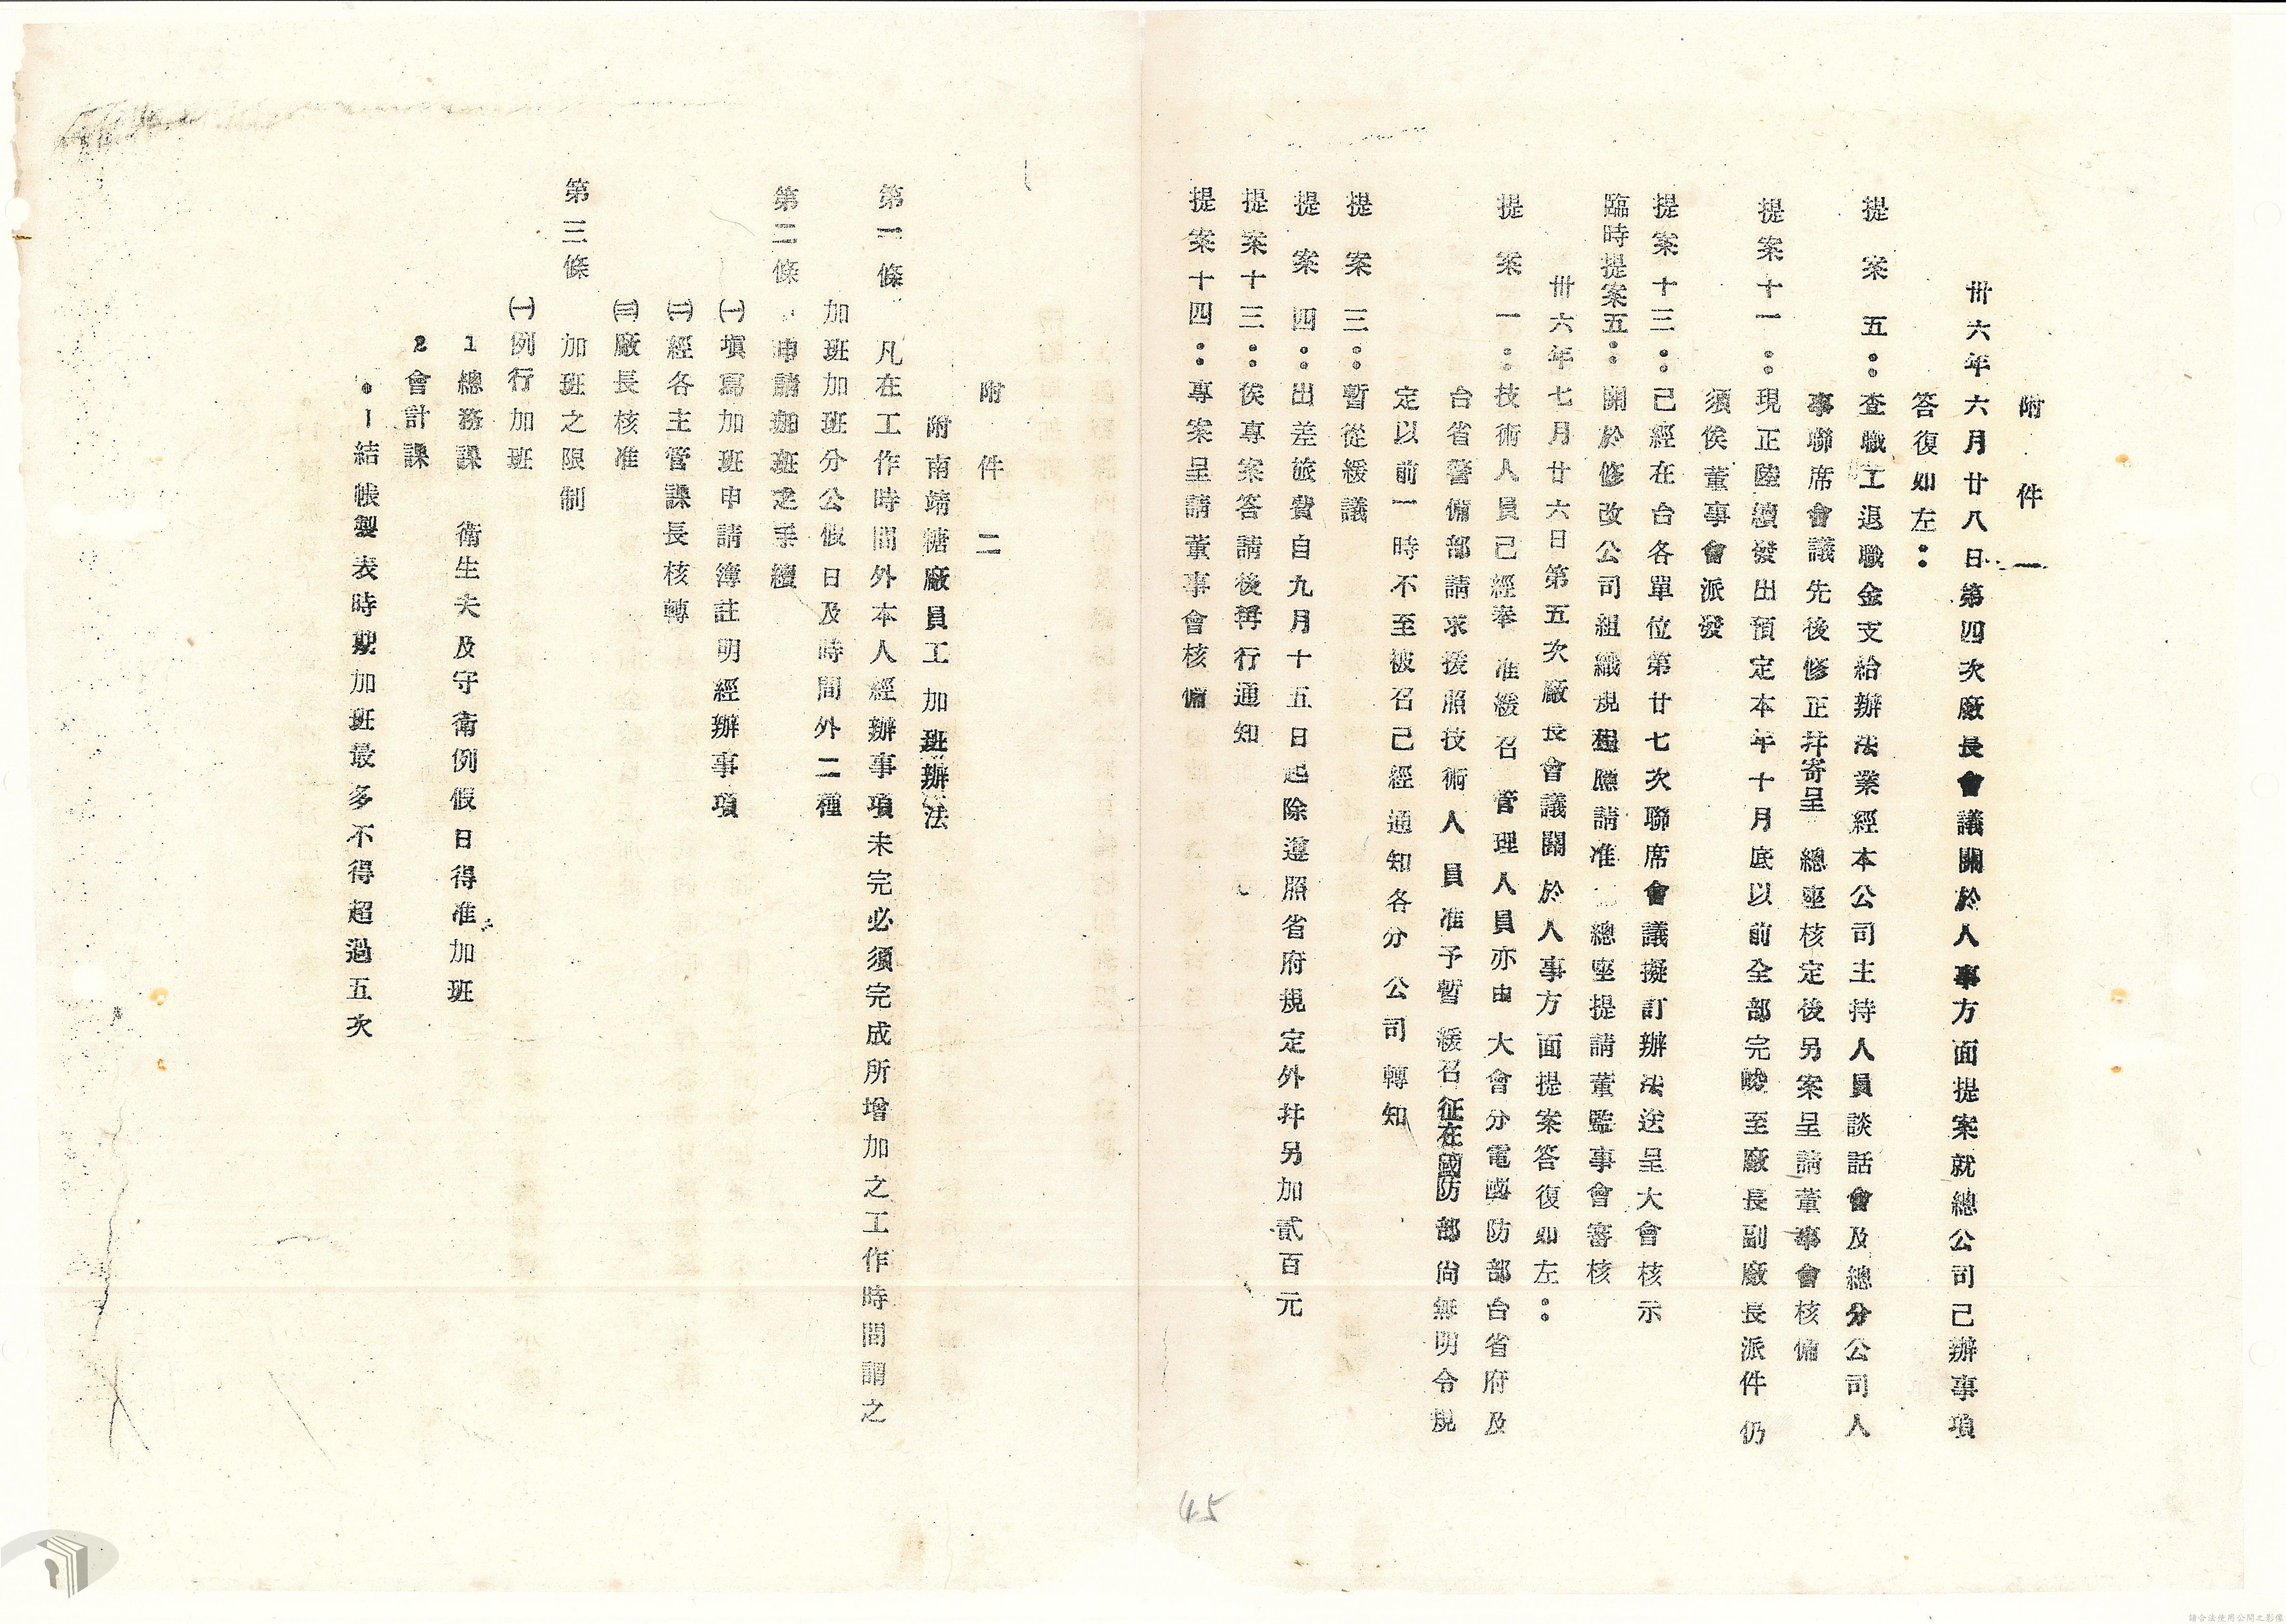 附件一
卅六年六月廿八日第四次廠長會議關於人事方面提案就總公司己辦事項
答復如左：
提案五：查職工退職金支給辦法業經本公司主持人員談話會及總分公司人
事聯席會議先後修正幷寄呈 總座核定後另案呈請董事會核備
提案十一：現正陸續發出預定本年十月底以前全部完竣至廠長副廠長派件仍
須俟董事會派發
提案十三：己經在台各單位第廿七次聯席會議擬訂辦法送呈大會核示
臨時提案五：關於修改公司組織規程應請准 總座提請董監事會審核
卅六年七月廿六日第五次廠長會議關於人事方面提案答復如左：
提案一：技術人員己經奉准緩召 管理人員亦由大會分電國防部台省府及
台省警備部請求援照技術人員准予暫緩召征在國防部尚無明令規
定以前一時不至被召己經通知各分公司轉知
提案三：暫從緩議
提案四：出差旅費自九月十五日起除遵照省府規定外幷另加貳百元
提案十三：俟專案答請後再行通知
提案十四：專案呈請董事會核備
附件二
附南靖糖廠員工加班辦法
第一條 凡在工作時間外本人經辦事項未完必須完成所增加之工作時間謂之
加班加班分公假日及時間外二種
第二條 申請加班之手續
㈠填寫加班申請簿註明經辦事項
㈡經各主管課長核轉
㈢廠長核准
第三條 加班之限制
㈠例行加班
1總務課 衛生夫及守衛例假日得准加班
2會計課
•1結帳製表時期加班最多不得超過五次
45
請合法使用公開之影像